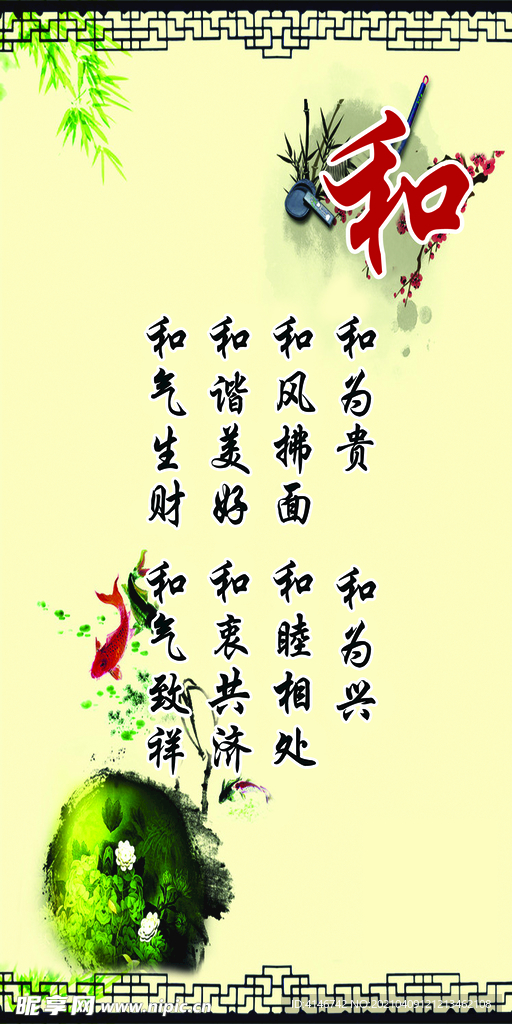 和
和为贵 和为兴
和风拂面 和睦相处
和谐美好 和衷共济
和气生财 和气致祥
昵享网 www.nipic.cn
ID:4146742 NO:20210409121213462108